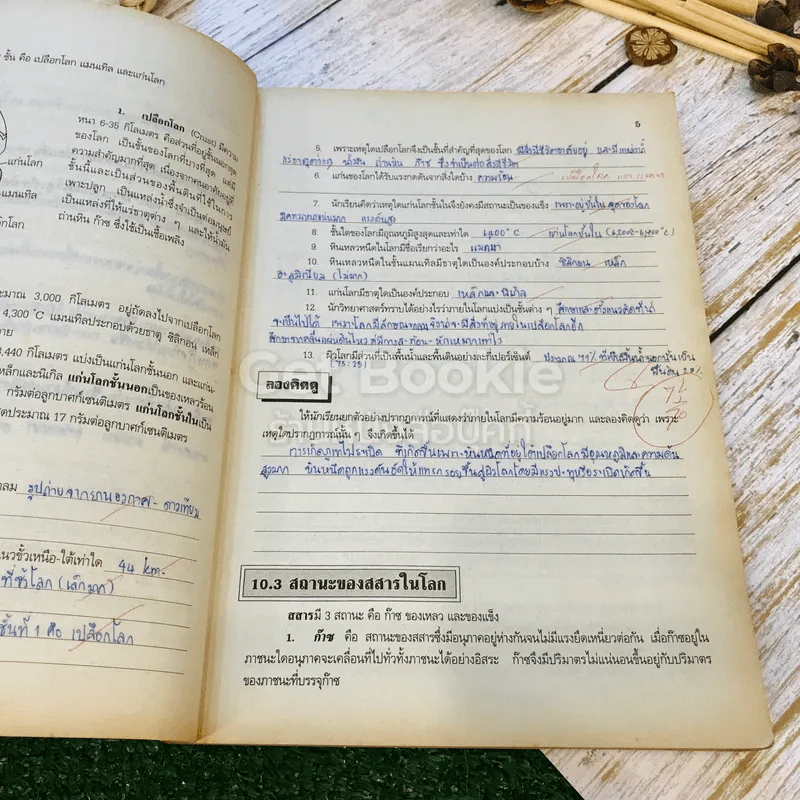 ชั้น คือ เปลือกโลก แมนเทิล และแก่นโลก
1. เปลือกโลก (Crust) มีความ
หนา 6-35 กิโลเมตร คือส่วนที่อยู่ชั้นนอกสุด
ของโลก เป็นชั้นของโลกที่บางที่สุด แต่มี
ความสำคัญมากที่สุด เนื่องจากคนอาศัยอยู่ที่
ชั้นนี้และเป็นส่วนของพื้นดินที่ใช้ในการ
เพาะปลูก เป็นแหล่งน้ำซึ่งจำเป็นต่อมนุษย์
เป็นแหล่งที่ให้แร่ธาตุต่าง ๆ และให้น้ำมัน
ถ่านหิน ก๊าซ ซึ่งใช้เป็นเชื้อเพลิง
แก่นโลก
แมนเทิล
เปลือกโลก
ระมาณ 3,000 กิโลเมตร อยู่ถัดลงไปจากเปลือกโลก
4,300 °C แมนเทิลประกอบด้วยธาตุ ซิลิกอน เหล็ก
,440 กิโลเมตร แบ่งเป็นแก่นโลกชั้นนอก และแก่น-
เหล็กและนิกิล แก่นโลกชั้นนอกเป็นของเหลวร้อน
กรัมต่อลูกบาศก์เซนติเมตร แก่นโลกชั้นในเป็น
ประมาณ 17 กรัมต่อลูกบาศก์เซนติเมตร
กลม รูปถ่ายจากยานอวกาศ- ดาวเทียม
แนวขั้วเหนือ-ใต้เท่าใด 44 km.
ที่ขั้วโลก (เล็กมาก)
ชั้นที่ 1 คือ เปลือกโลก
5
5. เพราะเหตุใดเปลือกโลกจึงเป็นชั้นที่สำคัญที่สุดของโลก มีสิ่งมีชีวิตอาศัยอยู่ และมีแหล่งน้ำ
แร่ธาตุต่างๆ น้ำมัน ถ่านหิน ก๊าซ ซึ่งจำเป็นต่อสิ่งมีชีวิต
6. แก่นของโลกได้รับแรงกดดันจากสิ่งใดบ้าง ความร้อน เปลือกโลก และ แมนเทิล
7. นักเรียนคิดว่าเหตุใดแก่นโลกชั้นในจึงยังคงมีสถานะเป็นของแข็ง เพราะอยู่ชั้นในสุดของโลก
มีความหนาแน่นมาก แรงดันสูง
8. ชั้นใดของโลกมีอุณหภูมิสูงสุดและเท่าใด 6,400 °C แก่นโลกชั้นใน
9. หินเหลวหนืดในโลกมีชื่อเรียกว่าอะไร แมกมา
10. หินเหลวหนืดในชั้นแมนเทิลมีธาตุใดเป็นองค์ประกอบบ้าง ซิลิกอน เหล็ก
อะลูมิเนียม (ไม่มาก)
11. แก่นโลกมีธาตุใดเป็นองค์ประกอบ เหล็กและนิเกิล
12. นักวิทยาศาสตร์ทราบได้อย่างไรว่าภายในโลกแบ่งเป็นชั้นต่าง ๆ ศึกษาและตั้งแนวคิดที่น่า
จะเป็นไปได้ เพราะโลกมีลักษณะกลม จึงน่าจะมีสิ่งที่อยู่ภายในเปลือกโลกอีก
ศึกษาจากคลื่นแผ่นดินไหว
13. ผิวโลกมีส่วนที่เป็นพื้นน้ำและพื้นดินอย่างละกี่เปอร์เซ็นต์ ประมาณ 71% ที่เหลือ
(75:25) พื้นดิน 29%
Get Bookie
ลองคิดดู
ให้นักเรียนยกตัวอย่างปรากฏการณ์ที่แสดงว่าภายในโลกมีความร้อนอยู่มาก และลองคิดดูว่า เพราะ
เหตุใดปรากฏการณ์นั้น ๆ จึงเกิดขึ้นได้
การเกิดภูเขาไฟระเบิด ที่เกิดขึ้นเพราะหินหนืดที่อยู่ใต้เปลือกโลกมีอุณหภูมิและความดัน
สูงมาก หินหนืดถูกแรงดันอัดให้แทรกรอยขึ้นสู่ผิวโลกโดยมีแรงปะทุหรือระเบิดเกิดขึ้น
10.3 สถานะของสสารในโลก
สสารมี 3 สถานะ คือ ก๊าซ ของเหลว และของแข็ง
1. ก๊าซ คือ สถานะของสสารซึ่งมีอนุภาคอยู่ห่างกันจนไม่มีแรงยึดเหนี่ยวต่อกัน เมื่อก๊าซอยู่ใน
ภาชนะใดอนุภาคจะเคลื่อนที่ไปทั่วทั้งภาชนะได้อย่างอิสระ ก๊าซจึงมีปริมาตรไม่แน่นอนขึ้นอยู่กับปริมาตร
ของภาชนะที่บรรจุก๊าซ